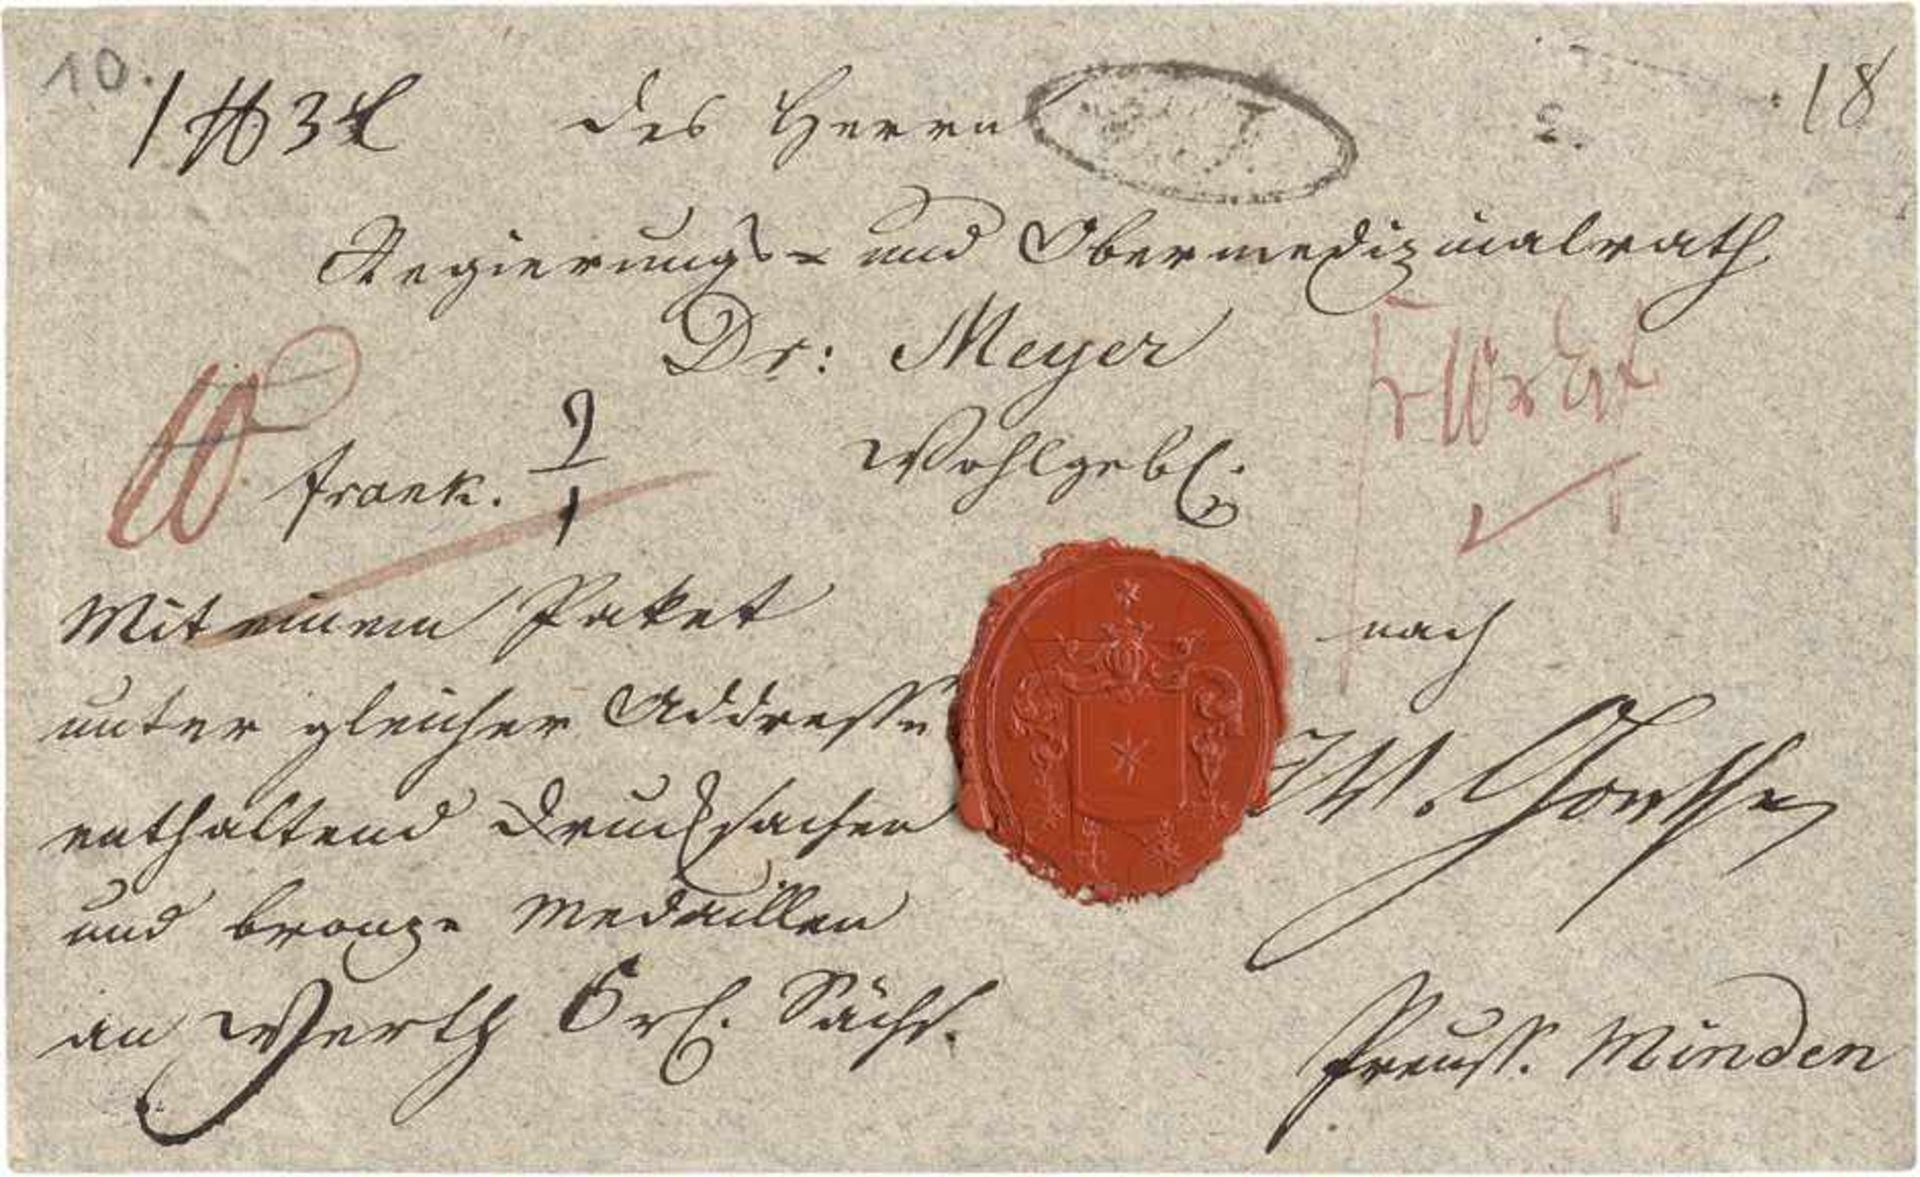 10.
18
1 ℔ 3 ℔
des Herrn
Regierungs- und Obermedizinalrath
Dr: Meyer
Wohlgeb.
frank.
Mit einem Paket
unter gleicher Addresse
enthaltend Drucksachen
und bronze Medaillen
an Werth 6 rl. Sächs.
nach
Preuss. Minden